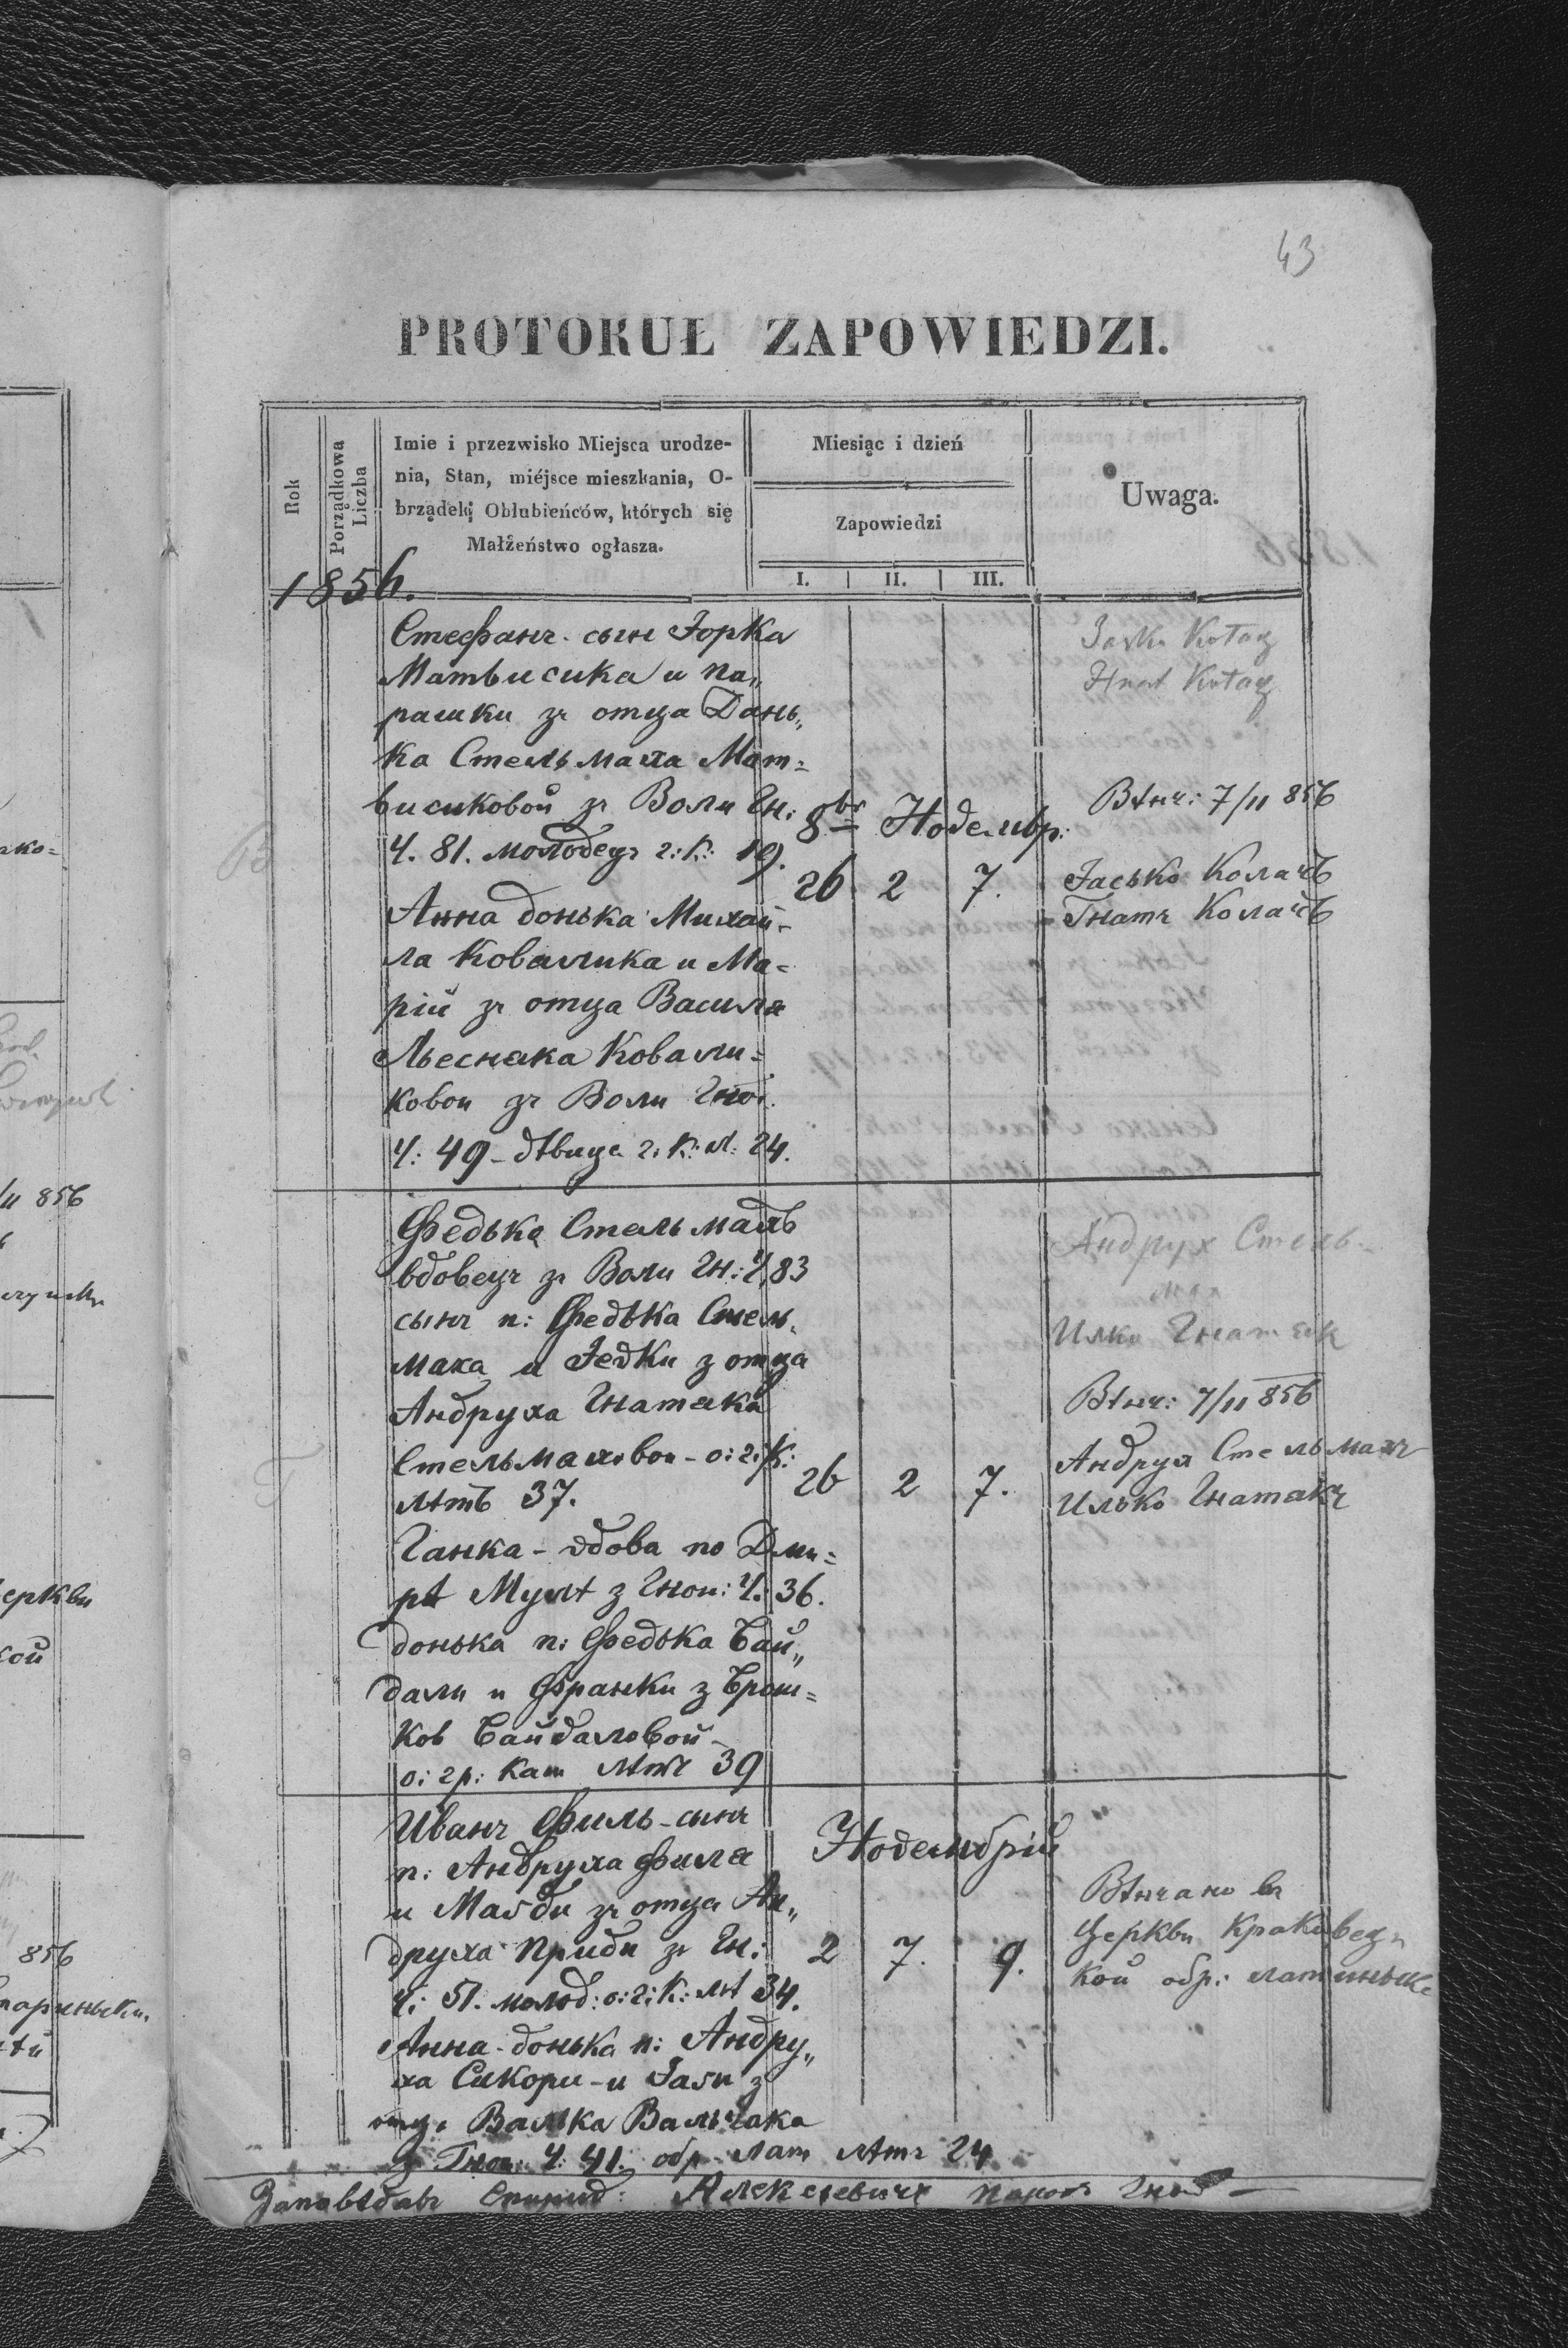 43
PROTOKUŁ ZAPOWIEDZI.
Rok
Porządkowa Liczba
Imie i przezwisko Miejsca urodze-
nia, Stan, miéjsce mieszkania, O-
brządek Oblubieńców, których się
Małżeństwo ogłasza.
Miesiąc i dzień
Zapowiedzi
I. II. III.
Uwaga.
1856.
Стефанъ сын Іорка
Матвисика и Па„
рашки зъ отца Дань„
ка Стельмаха Мат=
висиковой зъ Воли Гн:
Ч. 81. молодецъ г: к: 19.
Анна донька Михай-
ла Ковалика и Ма=
рій зъ отца Василя
Льеснака Ковали=
ковои зъ Воли Гной.
Ч: 49 - дѣвица г: к: л: 24.
8br Новемвр:
26 2 7.
Jasko Kołacz
Hnat Kołacz
Вѣнч: 7/11 856
Іасько Колачъ
Гнатъ Колачъ
В
Федька Стельмахъ
вдовецъ зъ Воли Гн: Ч 83
сынъ п: Федька Стель„
маха и Іевки з отца
Андруха Гнатака
Стельмаховои - о: г: к:
лѣтъ 37.
Ганка - вдова по Дми=
рѣ Мулѣ з Гнои: Ч: 36.
донька п: Федька Бай„
дали и Франки з Брош=
ков Байдаловой -
о: гр: кат лѣтъ 39
26 2 7.
Андрух Стель-
мах
Илко Гнатак
Вѣнч: 7/11 856
Андрух Стельмахъ
Илько Гнатакъ
Г
Иванъ Филь - сынъ
п: Андруха Филя
и Магди зъ отца Ан„
друха Приди зъ Гн:
Ч: 51. молод: о: г: к: лѣ 34.
Анна - донька п: Андру„
ха Сикори - и Заги з
отца Валька Вальчака
з Гнои: Ч: 41. обр лат лѣтъ 24
Новембрій
2 7. 9.
Вѣнчано въ
Церкви Краковец„
кой обр: латиньск
Заповѣдавъ Спирид: Алексевичъ парох Гной -